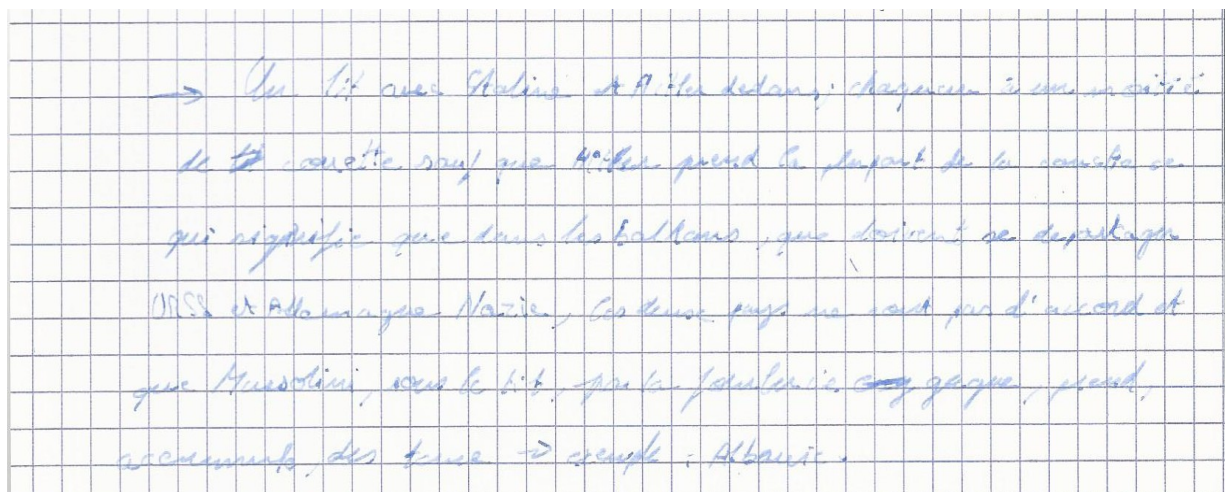 → Un lit avec Staline et Hitler dedans; chaqueun à un moitié
de couette sauf que Hitler prend la plupart de la couette ce
qui signifie que dans les balkans, que doivent se departager
URSS et Allemagne Nazie, Ces deux pays ne sont pas d'accord et
que Mussolini, sous le lit, par la gagne, prend,
des terre → exemple : Albanie.